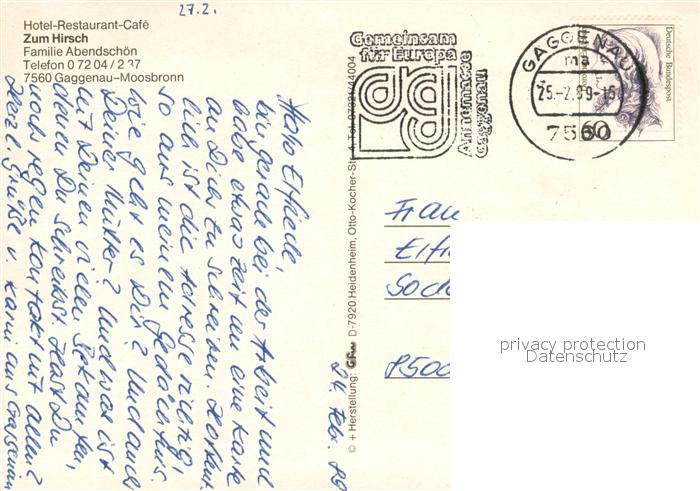 27.2.
Hotel-Restaurant-Café
Zum Hirsch
Familie Abendschön
Telefon 0 72 04 / 2 37
7560 Gaggenau–Moosbronn
Hallo Elfriede,
bin gerade bei der Arbeit und
habe etwas Zeit um eine Karte
an Dich zu schreiben. Hoffent
lich ist die Adresse richtig,
so aus meinem Gedächtnis.
Wie geht es Dir? Und auch
Deiner Mutter? Und was ist
mit Deinen vielen Bekannten,
denen Du schreibst. Hast Du
noch regen Kontakt mit allen?
Herzl. Grüße v. Karin aus
© + Herstellung: D-7920 Heidenheim, Otto-Kocher-Str. 4, Tel. 07321/44004
24. Feb. 89
Gemeinsam
für Europa
Annemasse
Gaggenau
GAGGENAU
ma
25.-2.89-15
7560
Deutsche Bundespost
60
Frau
Elfri
8500
privacy protection
Datenschutz